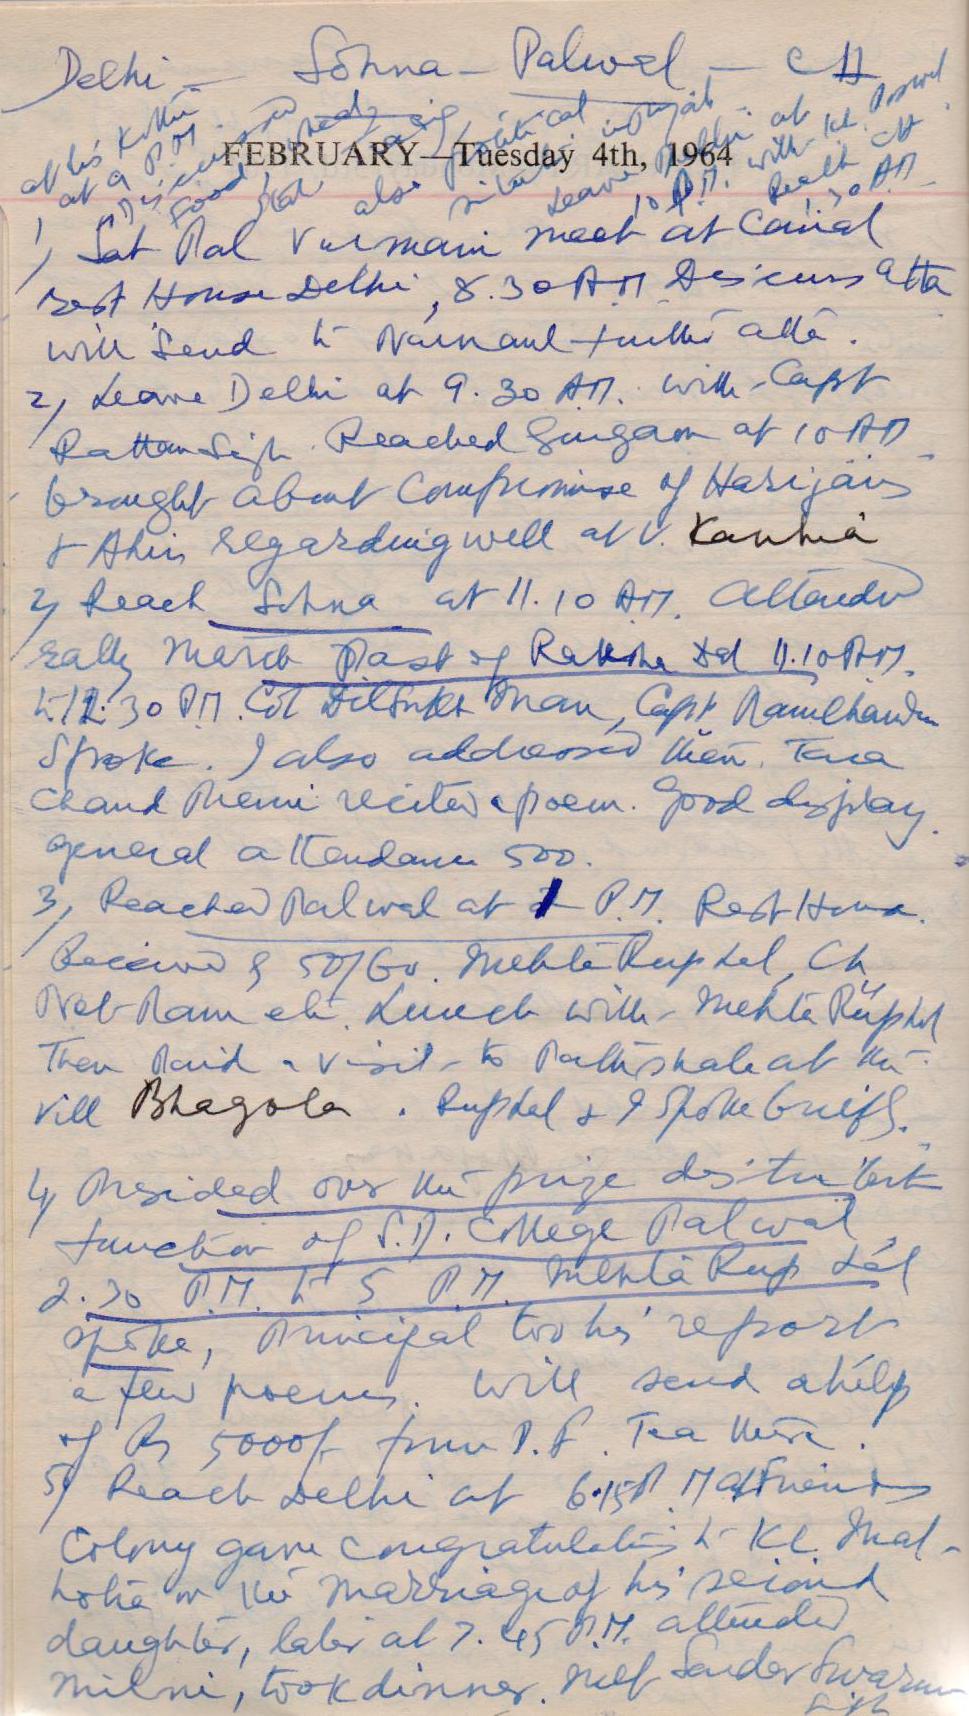 Delhi - Sohna - Palwal - CH
FEBRUARY—Tuesday 4th, 1964
1) Sat Pal meet at Canal
rest House Delhi, 8.30 A.M. Discuss Atta
will send to Narnaul further atta.
2) Leave Delhi at 9.30 A.M. with Capt
Rattan Singh. Reached Gurgaon at 10 AM
brought about Compromise of Harijans
& Ahirs regarding well at V. Kanhia
2) Reach Sohna at 11.10 A.M. Attended
rally March Past of Raksha Dal 11.10 A.M.
to 12.30 P.M. Col Dilsukh Man, Capt Ramchander
spoke. I also addressed them. Tara
Chand Premi recited a poem. Good display.
general attendance 500.
3) Reached Palwal at 1 P.M. Rest House.
Received by 50/60. Mehta Rup Lal, Ch
Net Ram etc. Lunch with Mehta Rup Lal
Then Paid a visit to Pathshala at the
Vill Bhagola. Rup Lal & I spoke briefly.
4) Presided over the prize distribution
function of S.D. College Palwal
2.30 P.M. to 5 P.M. Mehta Rup Lal
spoke, Principal too his report
a few poems. Will send a help
of Rs 5000/- from D.F. Tea there.
5) Reach Delhi at 6.15 P.M at Friends
Colony gave congratulations to KL Mal-
hotra on the marriage of his second
daughter, later at 7.45 P.M. attended
Milni, took dinner. Met Sardar Swaran
Singh
at his Kothi
at 9 P.M.
Discussed
Food
also political
situation in Punjab
Leave Delhi at
10 P.M. with
Reach CH